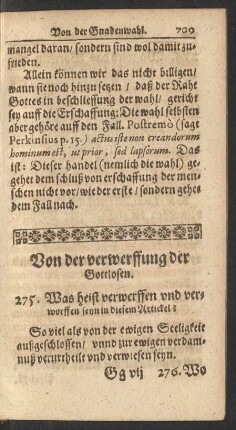 Von der Gnadenwahl. 709
mangel daran/ sondern sind wol damit zu-
frieden.
Allein können wir das nicht billigen/
wann sie noch hinzu setzen / daß der Raht
Gottes in beschliessung der wahl/ gericht
sey auff die Erschaffung: Die wahl selbsten
aber gehöre auff den Fall. Postremò (sagt
Perkinsius p. 15.) actus iste non creandorum
hominum est, ut prior, sed lapsorum. Das
ist: Dieser handel (nemlich die wahl) ge-
gehet dem schluß von erschaffung der men-
schen nicht vor/ wie der erste / sondern gehet
dem Fall nach.
Von der verwerffung der
Gottlosen.
275. Was heist verwerffen vnd ver-
worffen seyn in diesem Artickel?
So viel als von der ewigen Seeligkeit
außgeschlossen/ vnnd zur ewigen verdam-
nuß verurtheilt vnd verwiesen seyn.
Gg vij 276. Wo